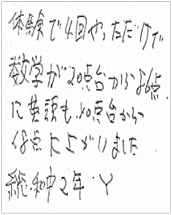 体験で4回やっただけで
数学が20点台から56点
に英語も10点台から
48点に上がりました
総和中2年 Y